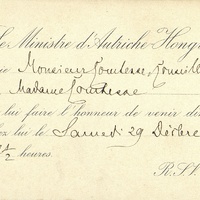 Le Ministre d'Autriche-Hongr
ie Monsieur Comtesse, Conseill
Madame Comtesse
lui faire l'honneur de venir dî
ez lui le Samedi 29 Décbre
1/2 heures.
R.S.V